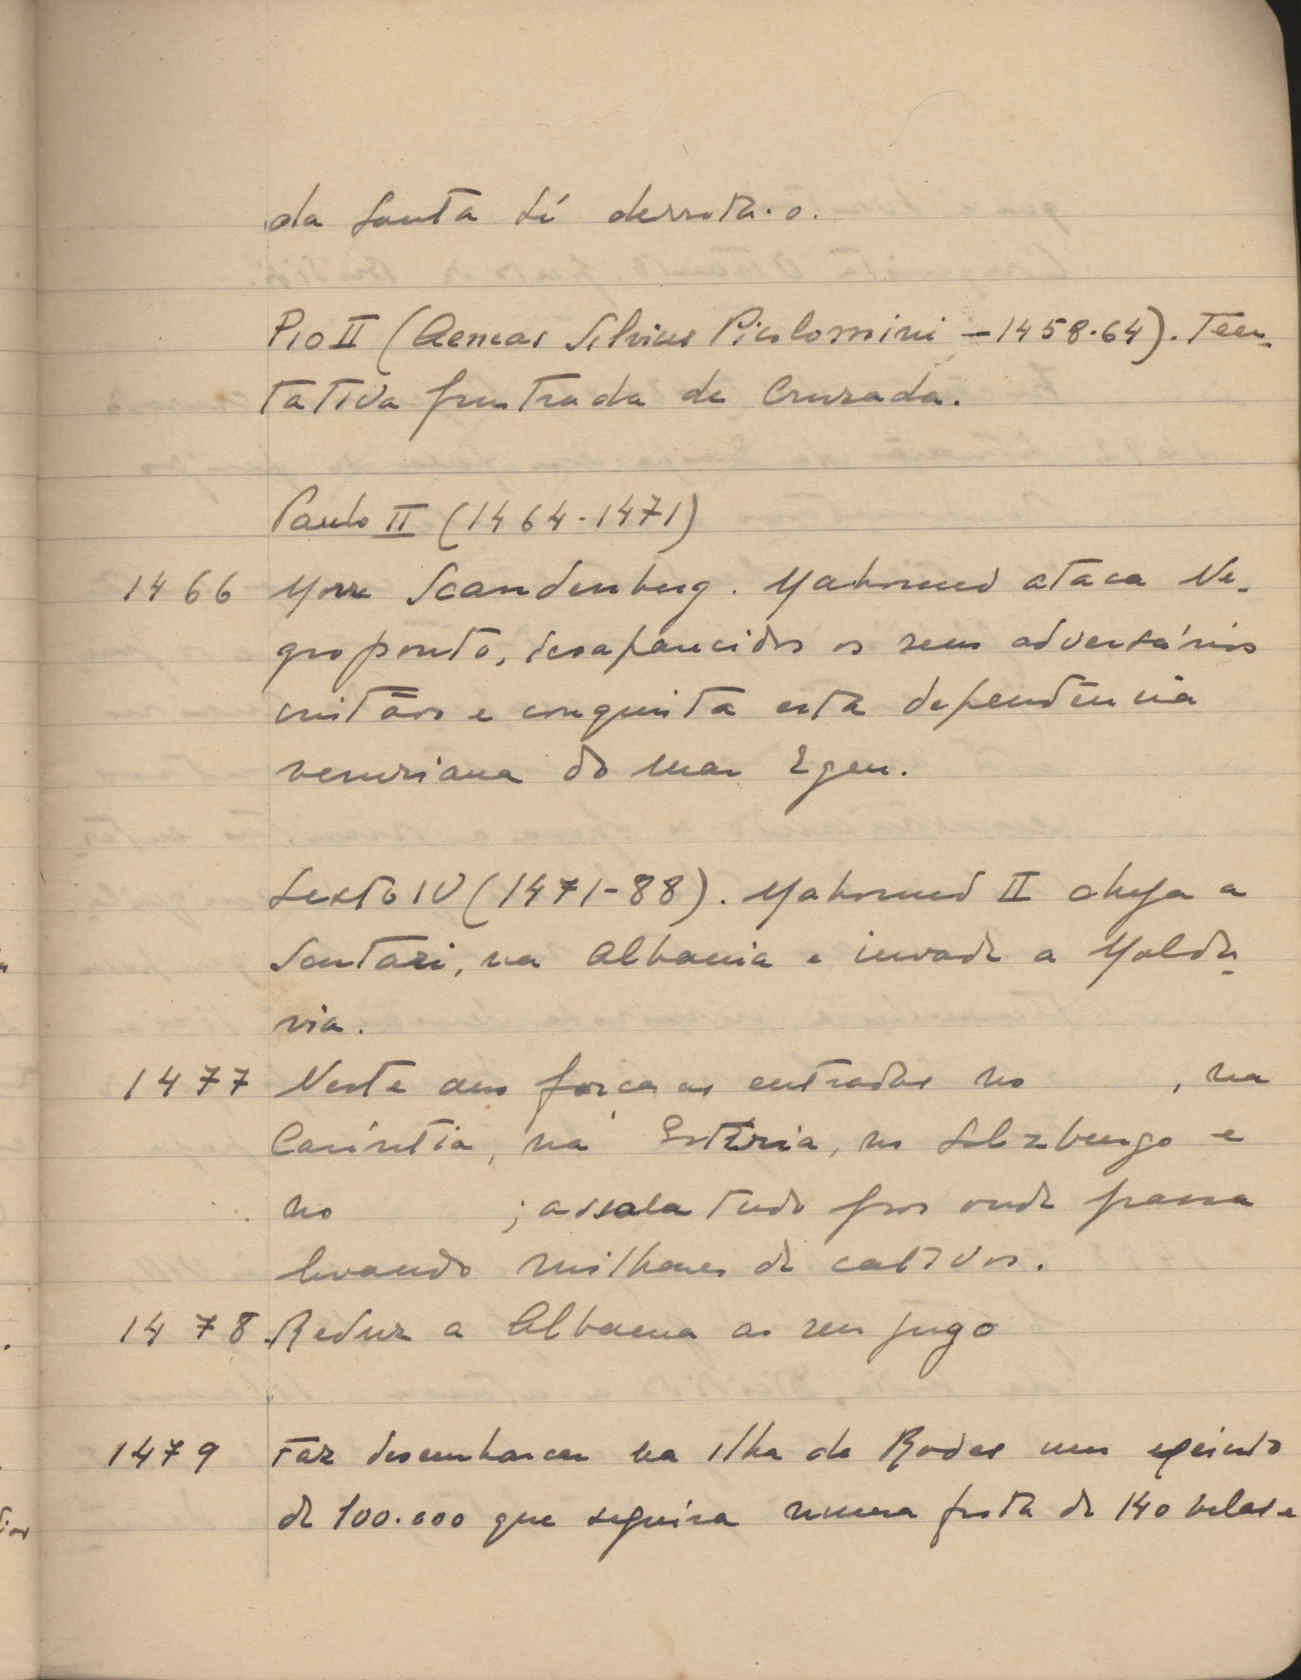 da Santa Sé derrota-o.
Pio II (Aeneas Silvius Picolomini - 1458-64). Ten-
tativa frustrada de Cruzada.
Paulo II (1464-1471)
1466 Morre Scandenberg. Mahomed ataca Ne-
groponto, desaparecidos os seus adversários
cristãos e conquista esta dependência
veneziana do mar Egeu.
Sexto IV (1471-88). Mahomed II chega a
Scutari, na Albania e invade a Moldá-
via.
1477 Neste ano força as entradas no , na
Caríntia, na Estíria, no Salzburgo e
no ; assola tudo por onde passa
levando milhares de cativos.
1478 Reduz a Albania ao seu jugo
1479 Faz desembarcar na ilha de Rodes um exército
de 100.000 que seguira numa frota de 140 velas e